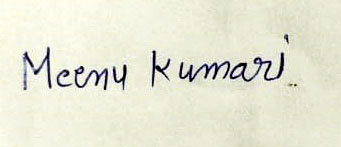 Meenu Kumari